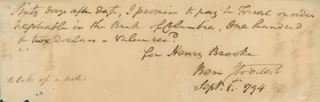 Sixty days after date, I promise to pay to Forest or order
negotiable in the Bank of Columbia, One hundred
& two Dollars - Value recd.
for Henry Brooke
Ben Stoddert
Sept. 1. 794
to take up a note